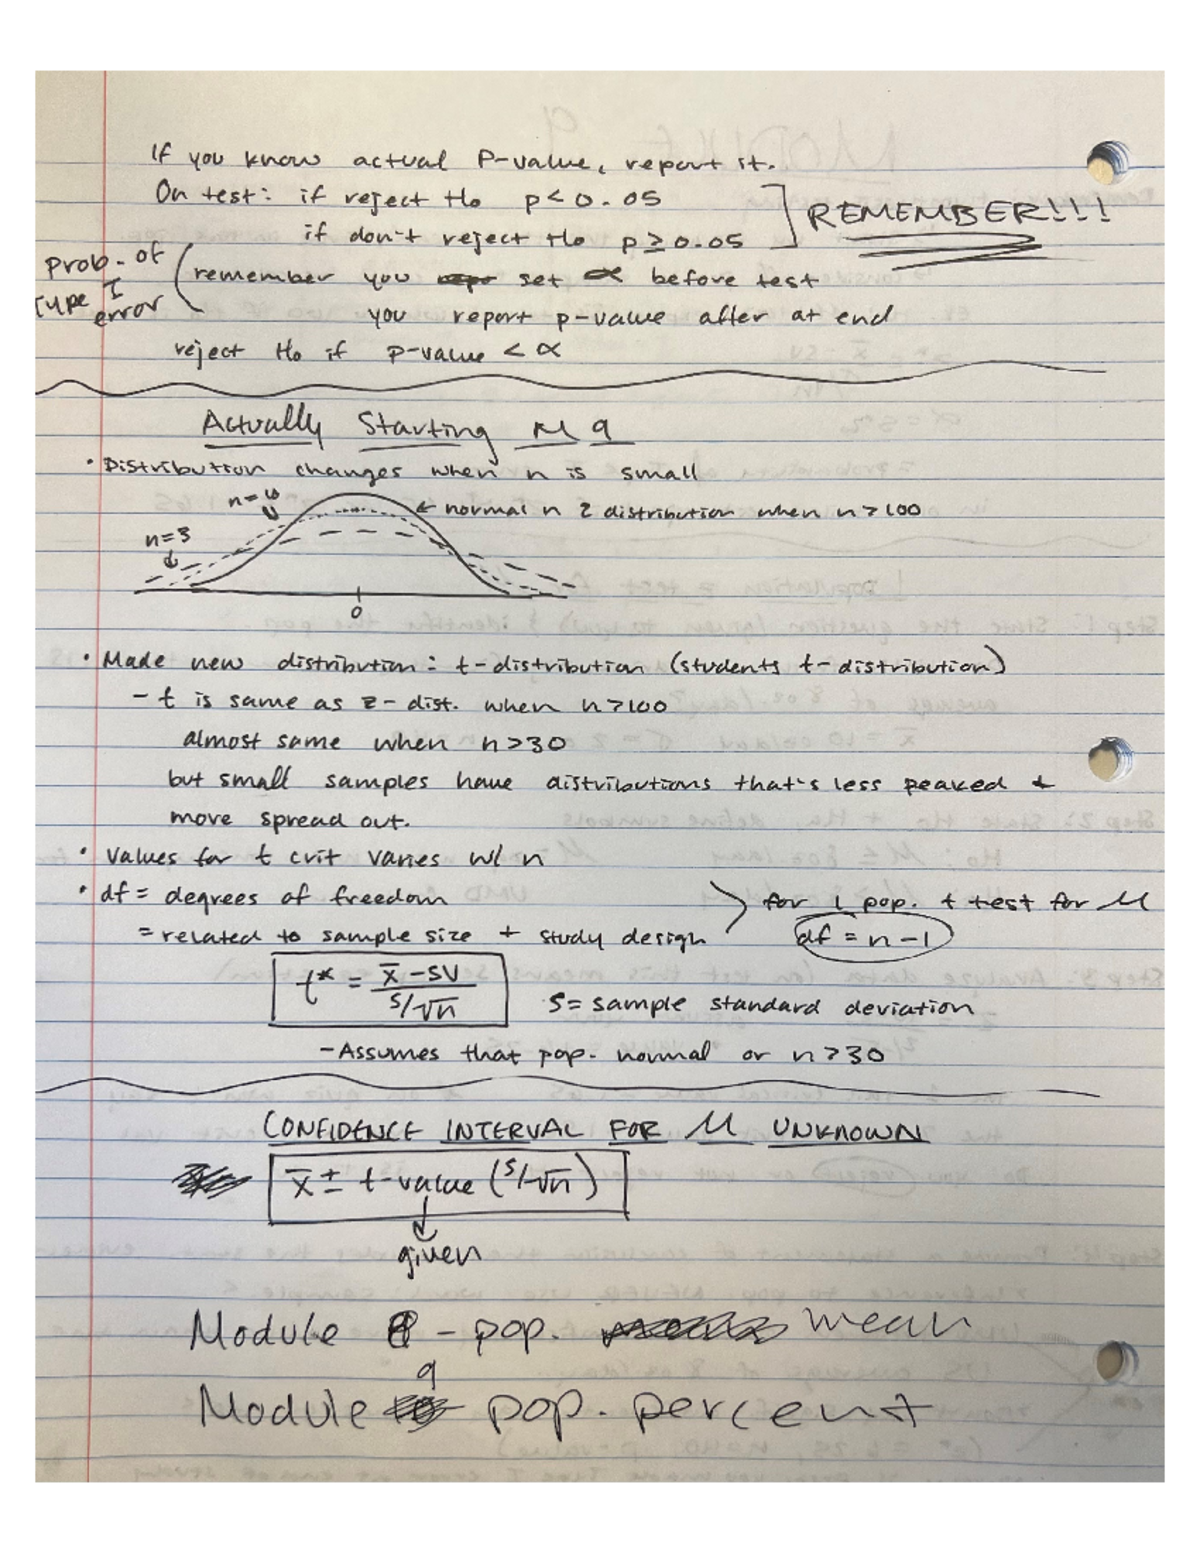 If you know actual P-value, report it.
On test: if reject Ho p<0.05
if don't reject Ho p≥0.05
] REMEMBER!!!
Prob. of Type I error
(remember you set α before test
you report p-value after at end
reject Ho if p-value < α
Actually Starting M9
• Distribution changes when n is small
n=6
← normal n z distribution when n>100
n=3
0
• Made new distribution: t-distribution (students t-distribution)
- t is same as z-dist. when n>100
almost same when n>30
but small samples have distributions that's less peaked +
more spread out.
• Values for t crit varies w/ n
• df = degrees of freedom
= related to sample size + study design
> for 1 pop. t test for μ
df = n-1
t* = x̄-SV / s/√n
S = sample standard deviation
- Assumes that pop. normal or n>30
CONFIDENCE INTERVAL FOR μ UNKNOWN
x̄ ± t-value (s/√n)
given
Module 8 - pop. mean
Module 9 pop. percent